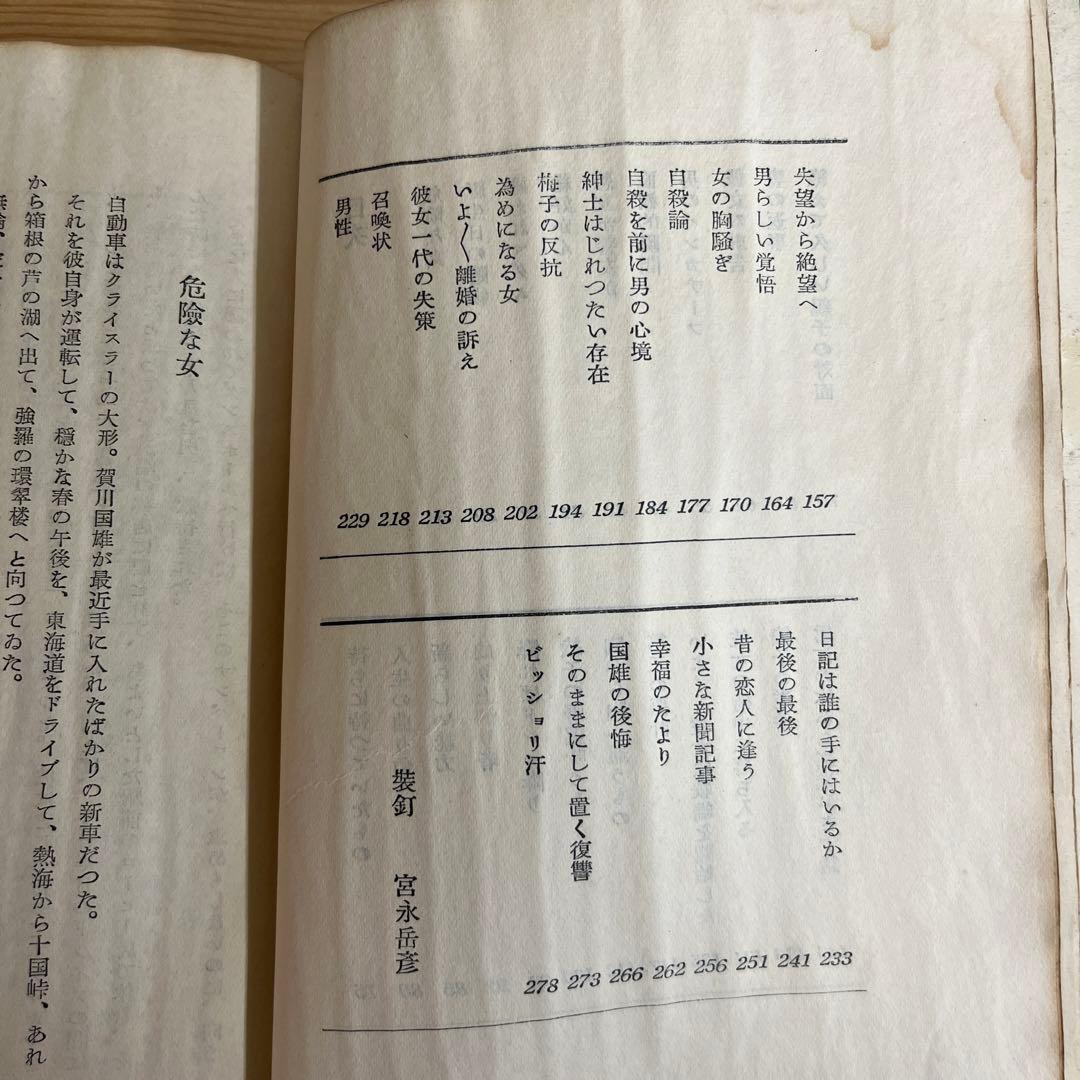 失望から絶望へ 157
男らしい覚悟 164
女の胸騒ぎ 170
自殺論 177
自殺を前に男の心境 184
紳士はじれつたい存在 191
梅子の反抗 194
為めになる女 202
いよ〳〵離婚の訴え 208
彼女一代の失策 213
召喚状 218
男性 229
日記は誰の手にはいるか 233
最後の最後 241
昔の恋人に逢う 251
小さな新聞記事 256
幸福のたより 262
国雄の後悔 266
そのままにして置く復讐 273
ビッショリ汗 278
装釘 宮永岳彦
危險な女
自動車はクライスラーの大形。賀川国雄が最近手に入れたばかりの新車だつた。
それを彼自身が運転して、穏かな春の午後を、東海道をドライブして、熱海から十国峠、あれ
から箱根の芦の湖へ出て、強羅の環翠楼へと向つてゐた。